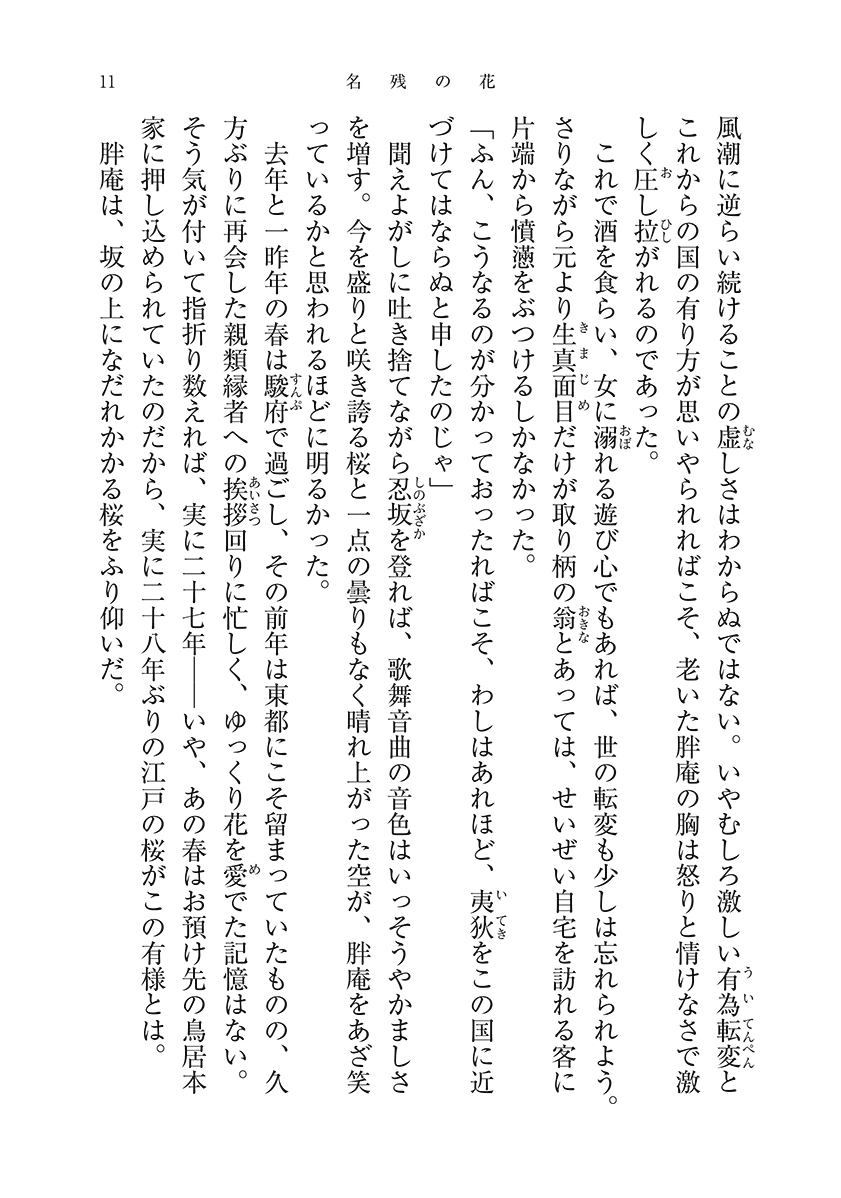 名残の花
11
風潮に逆らい続けることの虚しさはわからぬではない。いやむしろ激しい有為転変と
これからの国の有り方が思いやられればこそ、老いた胖庵の胸は怒りと情けなさで激
しく圧し拉がれるのであった。
　これで酒を食らい、女に溺れる遊び心でもあれば、世の転変も少しは忘れられよう。
さりながら元より生真面目だけが取り柄の翁とあっては、せいぜい自宅を訪れる客に
片端から憤懣をぶつけるしかなかった。
「ふん、こうなるのが分かっておったればこそ、わしはあれほど、夷狄をこの国に近
づけてはならぬと申したのじゃ」
　聞えよがしに吐き捨てながら忍坂を登れば、歌舞音曲の音色はいっそうやかましさ
を増す。今を盛りと咲き誇る桜と一点の曇りもなく晴れ上がった空が、胖庵をあざ笑
っているかと思われるほどに明るかった。
　去年と一昨年の春は駿府で過ごし、その前年は東都にこそ留まっていたものの、久
方ぶりに再会した親類縁者への挨拶回りに忙しく、ゆっくり花を愛でた記憶はない。
そう気が付いて指折り数えれば、実に二十七年――いや、あの春はお預け先の鳥居本
家に押し込められていたのだから、実に二十八年ぶりの江戸の桜がこの有様とは。
　胖庵は、坂の上になだれかかる桜をふり仰いだ。